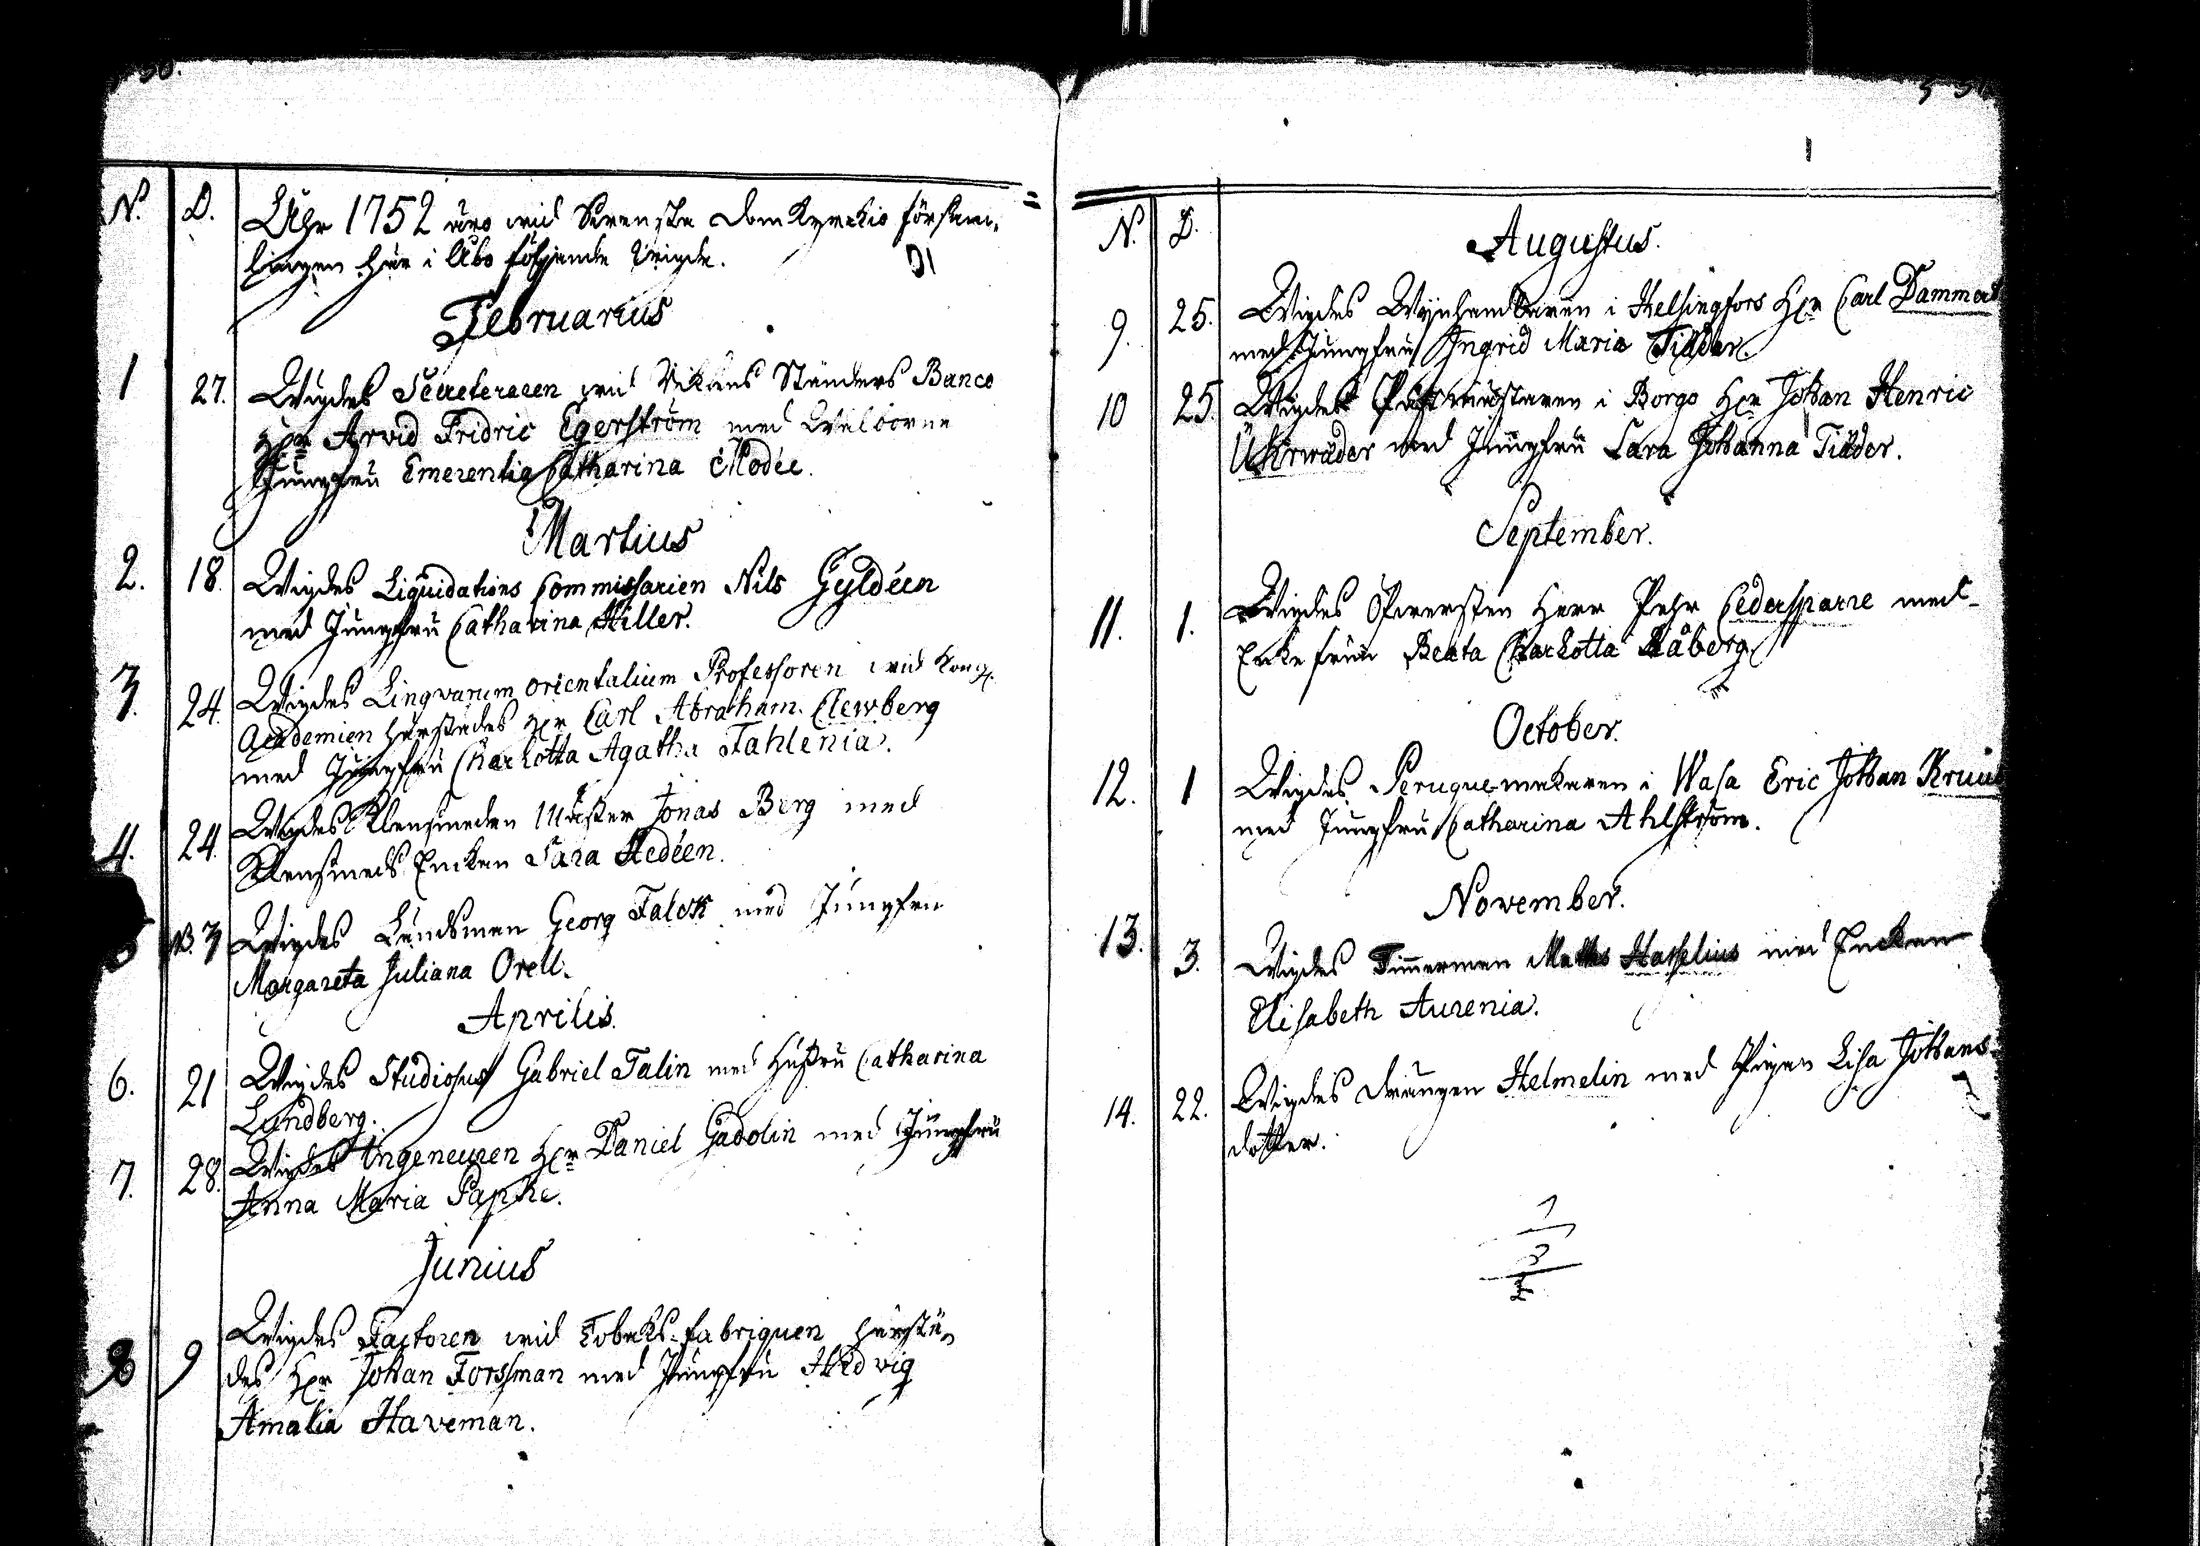 N. D. Uhr 1752 äro wid Swenska Domkyrckio försam-
lingen här i Åbo följande wigde.
Februarius
1 27. Wigdes Secreteraren wid Riksens Ständers Banco
Hr Arvid Fridric Egerström med Wälborne
Jungfru Emerentia Catharina Modée.
Martius
2. 18. Wigdes Liquidations Commissarien Nils Gyldéen
med Jungfru Catharina Hiller.
3. 24. Wigdes Lingvarum orientalium Professoren wid Kongl.
Academien härstädes Hr Carl Abraham Clewberg
med Jungfru Charlotta Agatha Fahlenia.
4. 24. Wigdes Klensmeden Mäster Jonas Berg med
Klensmeds Enckan Sara Hedéen.
5 3 Wigdes Ländsman Georg Falck med Jungfru
Margareta Juliana Orell.
Aprilis.
6. 21 Wigdes Studiosus Gabriel Talin med Hustru Catharina
Lundberg.
7. 28. Wigdes Ingeneuren Hr Daniel Gadolin med Jungfru
Anna Maria Papke.
Junius
8 9 Wigdes Factoren wid Tobaks-fabriquen härstä-
des Hr Johan Forssman med Jungfru Hedvig
Amalia Haveman.
N. D.
Augustus.
9. 25. Wigdes Wynhandlaren i Helsingfors Hr Carl Dammert
med Jungfru Ingrid Maria Tilder.
10 25. Wigdes Postmästaren i Borgo Hr Johan Henric
Uhrwäder med Jungfru Sara Johanna Tilder.
September.
11. 1. Wigdes Öfwersten Herr Pehr Cedersparre med
Enkefrun Beata Charlotta Råberg
October.
12. 1 Wigdes Peruquemakaren i Wasa Eric Johan
med Jungfru Catharina Ahlström.
November.
13. 3. Wigdes Timmerman Matts Hasselius med Enckan
Elisabeth Aurenia.
14. 22. Wigdes Drängen Helmelin med Pigan Lisa Johans-
dotter.